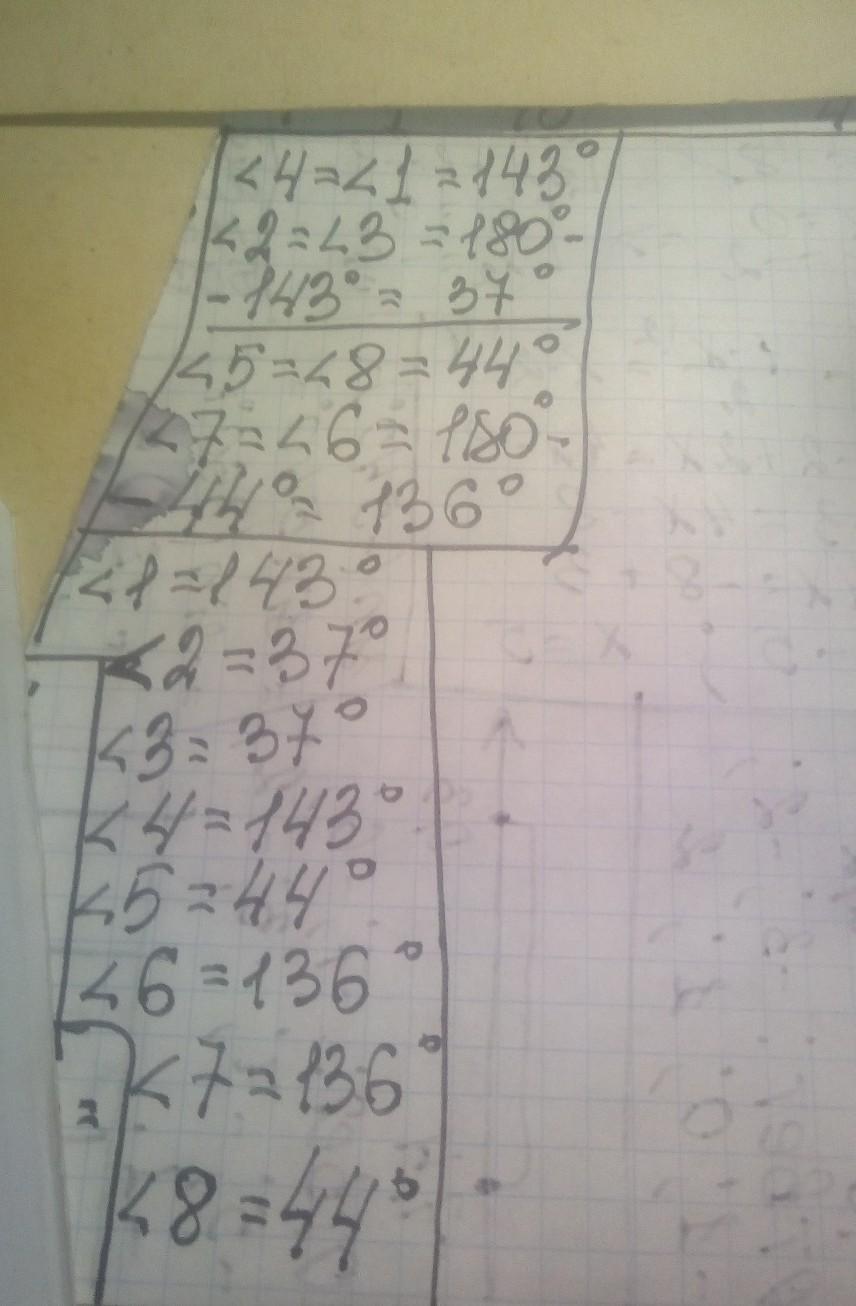 <4=<1=143°
<2=<3=180°-
-143°= 37°
<5=<8=44°
<7=<6=180°-
-44°= 136°
<1=143°
<2=37°
<3=37°
<4=143°
<5=44°
<6=136°
<7=136°
=
<8=44°